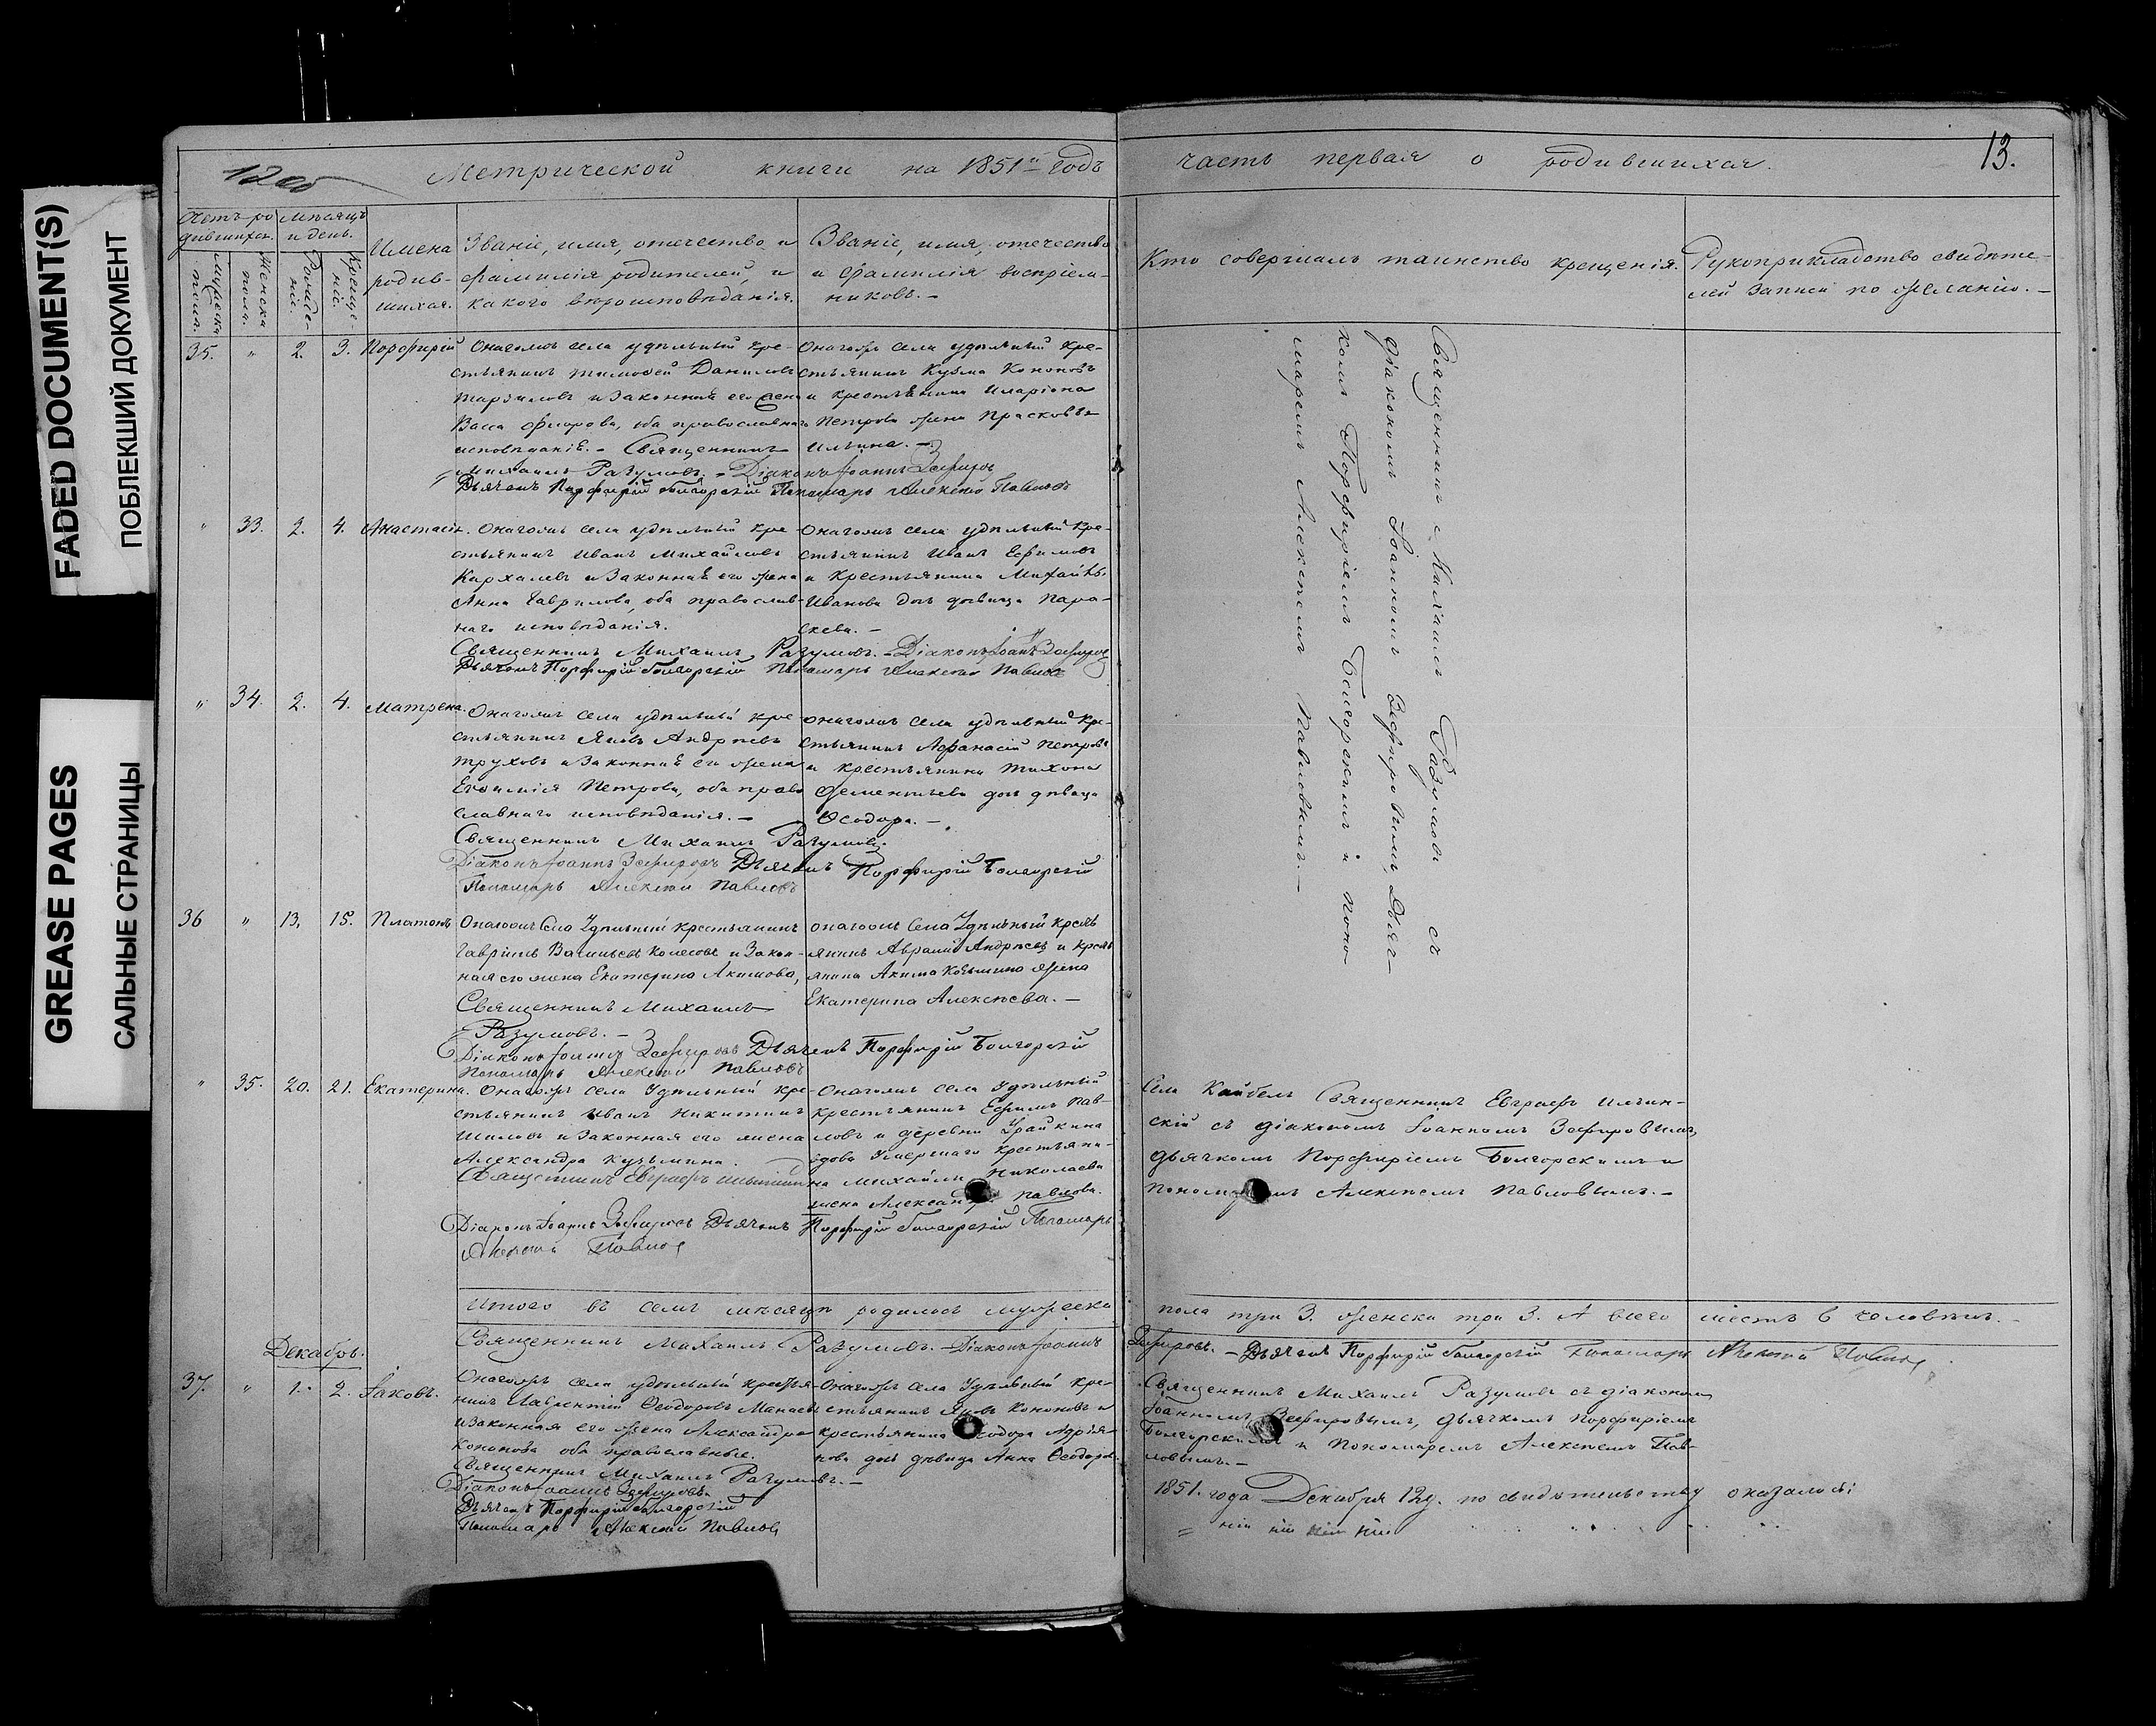 FADED DOCUMENT(S)
ПОБЛЕКШИЙ ДОКУМЕНТ
GREASE PAGES
САЛЬНЫЕ СТРАНИЦЫ
Метрической книги на 1851й годъ
часть первая о родившихся.
13.
Счетъ ро
дившихся.
мѣсяцъ
и день.
Мужеска
пола.
Женска
пола.
Рожде-
нія.
Креще-
нія.
Имена
родив-
шихся.
Званіе, имя, отечество и
фамилія родителей, и
какого вѣроисповѣданія.
Званіе, имя, отечество
и фамилія воспріем-
никовъ. –
Кто совершалъ таинство крещенія.
Рукоприкладство свидѣте-
лей записи по желанію. –
35. " 2. 3. Порфирій
Онагожъ села удѣльный кре-
стьянинъ Тимофей Даниловъ
и законная его жена
Васса Флорова, оба православнаго
исповѣданія. – Священникъ
Михаилъ Разумовъ. – Діаконъ Іоаннъ Зефировъ
Дьячекъ Порфирій Болгорскій Пономарь Алексей Павловъ
Онагожъ села удѣльный кре-
стьянинъ Кузма Кононовъ
и крестьянина Иларіона
Петрова жена Прасковья
Ильина. –
" 33. 2. 4. Анастасія.
Онагожъ села удѣльный кре-
стьянинъ Иванъ Михайловъ
Кархалевъ и законная его жена
Анна Гаврилова, оба православ-
наго исповѣданія.
Священникъ Михаилъ Разумовъ. – Діаконъ Іоаннъ Зефировъ
Дьячекъ Порфирій Болгорскій Пономарь Алексей Павловъ
Онагожъ села удѣльный кре-
стьянинъ Иванъ Ефимовъ
и крестьянина Михайлы
Иванова дочь дѣвица Пара-
скева. –
" 34. 2. 4. Матрена.
Онагожъ села удѣльный кре
стьянинъ Яковъ Андреевъ
Труховъ и законная его жена
Евфимія Петрова, оба право
славнаго исповѣданія. –
Священникъ Михаилъ Разумовъ.
Діаконъ Іоаннъ Зефировъ Дьячекъ Порфирій Болгорскій
Пономарь Алексей Павловъ
Онагожъ села удѣльный кре-
стьянинъ Афанасій Петровъ
и крестьянина Тихона
Дементьева дочь дѣвица
Ѳеодора. –
36 " 13. 15. Платонъ
Онагожъ Села Удѣльный крестьянинъ
Гаврілъ Васильевъ Колесовъ и закон-
ная его жена Екатерина Акимова,
Священникъ Михаилъ
Разумовъ. –
Діаконъ Іоаннъ Зефировъ Дьячекъ Порфирій Болгорскій
Пономарь Алексей Павловъ
Онагожъ Села Удѣльный кресть
янинъ Аврамій Андреевъ и кресть
янина Акима жена
Екатерина Алексѣева. –
" 35. 20. 21. Екатерина.
Онагожъ села Удѣльный кре-
стьянинъ Иванъ Никитинъ
Шиловъ и законная его жена
Александра Кузьмина.
Священникъ Евграфъ Ильинскій
Діаконъ Іоаннъ Зефировъ Дьячекъ Порфирій Болгорскій Пономарь
Алексей Павловъ
Онагожъ села Удѣльный
крестьянинъ Ефимъ Пав-
ловъ и деревни Урайкина
вдова умершаго крестьяни-
на Михайлы Николаева
жена Александра Павлова.
Священникъ Михаилъ Разумовъ съ
діакономъ Іоанномъ Зефировымъ, Дьяч-
комъ Порфиріемъ Болгорскимъ и Поно-
маремъ Алексѣемъ Павловымъ. –
Села Кайбелъ Священникъ Евграфъ Ильин-
скій съ діакономъ Іоанномъ Зефировымъ,
дьячкомъ Порфиріемъ Болгорскимъ и
Пономаремъ Алексѣемъ Павловымъ. –
Итого въ семъ мѣсяцѣ родилось мужеска пола три 3. женска три 3. А всего шесть 6 человѣкъ. –
Священникъ Михаилъ Разумовъ. – Діаконъ Іоаннъ Зефировъ. – Дьячекъ Порфирій Болгорскій Пономарь Алексей Павловъ
Декабрь.
37. " 1. 2. Іаковъ.
Онагожъ села удѣльный крестья-
нинъ Лаврентій Ѳеодоровъ Манаевъ
и законная его жена Александра
Кононова оба православные.
Священникъ Михаилъ Разумовъ. –
Діаконъ Іоаннъ Зефировъ.
Дьячекъ Порфирій Болгорскій
Пономарь Алексей Павловъ
Онагожъ села Удѣльный кре-
стьянинъ Яковъ Кононовъ и
крестьянина Ѳеодора Адріа-
нова дочь дѣвица Анна Ѳеодорова.
Священникъ Михаилъ Разумовъ съ діакономъ
Іоанномъ Зефировымъ, дьячкомъ Порфиріемъ
Болгорскимъ и Пономаремъ Алексѣемъ Пав-
ловымъ. –
1851. года Декабря 12д. по свидѣтельству оказалось: